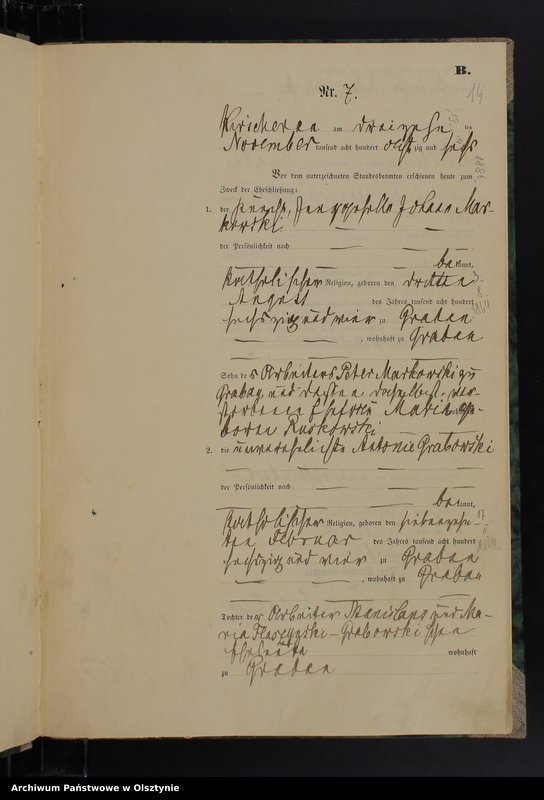 B.
Nr. 7.
14
Kirschenau am dreizehn ten
November tausend acht hundert achtzig und sechs
1886
Vor dem unterzeichneten Standesbeamten erschienen heute zum
Zweck der Eheschließung:
1. der Knecht, Junggeselle Johann Mar-
kowski
der Persönlichkeit nach
be kannt,
katholischer Religion, geboren den dritten
3.
August des Jahres tausend acht hundert
8.
1864
sechszig und vier zu Grabau
, wohnhaft zu Grabau
Sohn des Arbeiters Peter Markowski zu
Grabau und dessen daselbst ver-
storbenen Ehefrau Marie ge-
wohnhaft
borenen Ruskowski
2. die unverehelichte Antonie Grabowski
der Persönlichkeit nach
be kannt,
katholischer Religion, geboren den siebenzehn-
17
ten Februar des Jahres tausend acht hundert
sechszig und vier zu Grabau
, wohnhaft zu Grabau
Tochter der Arbeiter Stanislaus und Ma-
ria Grabowski schen
Eheleute wohnhaft
zu Grabau
Archiwum Państwowe w Olsztynie